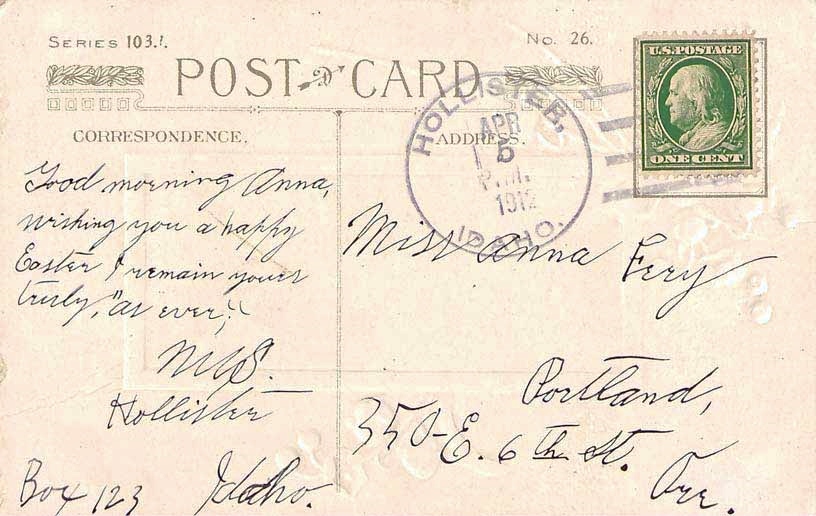 SERIES 103.
No. 26.
POST CARD
CORRESPONDENCE.
ADDRESS.
HOLLISTER,
APR
5
P.M.
1912
IDAHO.
U.S. POSTAGE
ONE CENT
Good morning Anna,
wishing you a happy
Easter I remain yours
truly, "as ever";
Hollister
Box 123 Idaho.
Miss Anna Fery
Portland,
350-E. 6th St.
Ore.